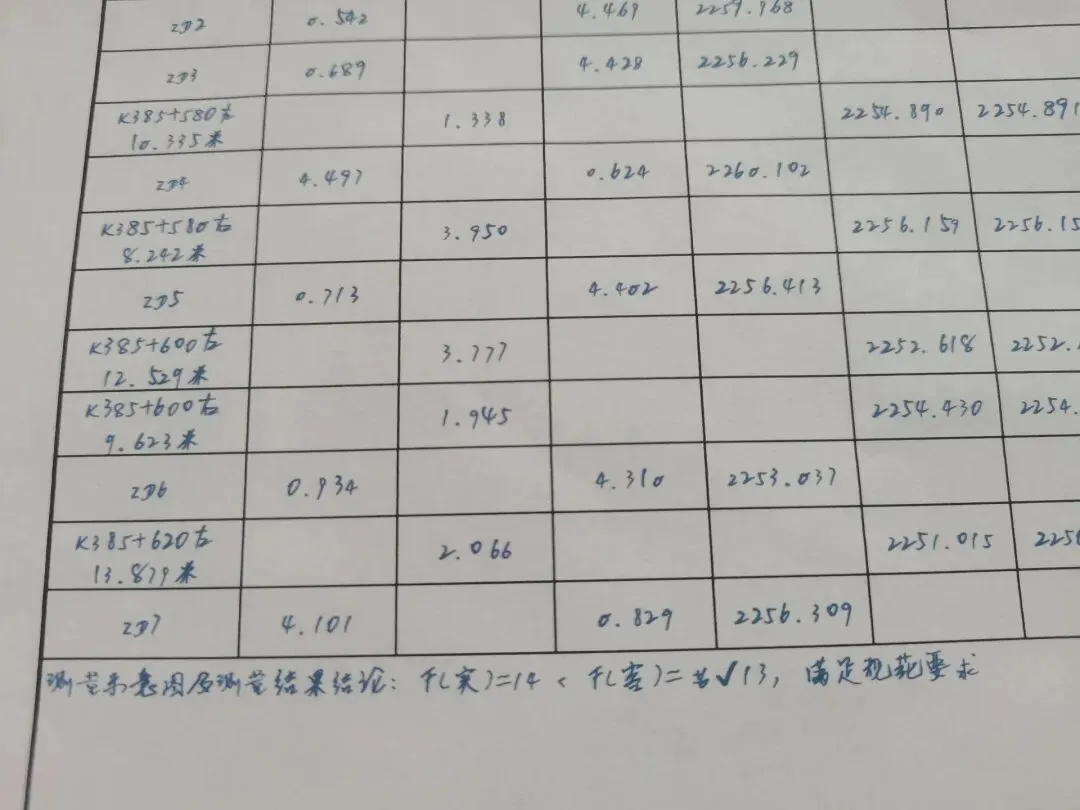 ZD2 0.542 4.469 2259.968
ZD3 0.689 4.428 2256.229
K385+580右 1.338 2254.890 2254.891
10.335米
ZD4 4.497 0.624 2260.102
K385+580右 3.950 2256.159 2256.15
8.242米
ZD5 0.713 4.402 2256.413
K385+600右 3.777 2252.618 2252.
12.529米
K385+600右 1.945 2254.430 2254.
9.623米
ZD6 0.934 4.310 2253.037
K385+620右 2.066 2251.015
13.879米
ZD7 4.101 0.829 2256.309
测量示意图及测量结果结论: f(实)=14 < f(容)= √13, 满足规范要求